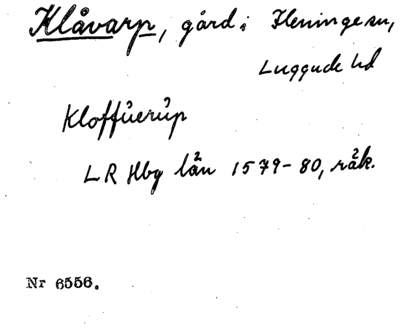 Klåvarp, gård i Fleninge sn,
Luggude hd
Kloffůerůp
LR Hbg län 1579-80, räk.
Nr 6556.